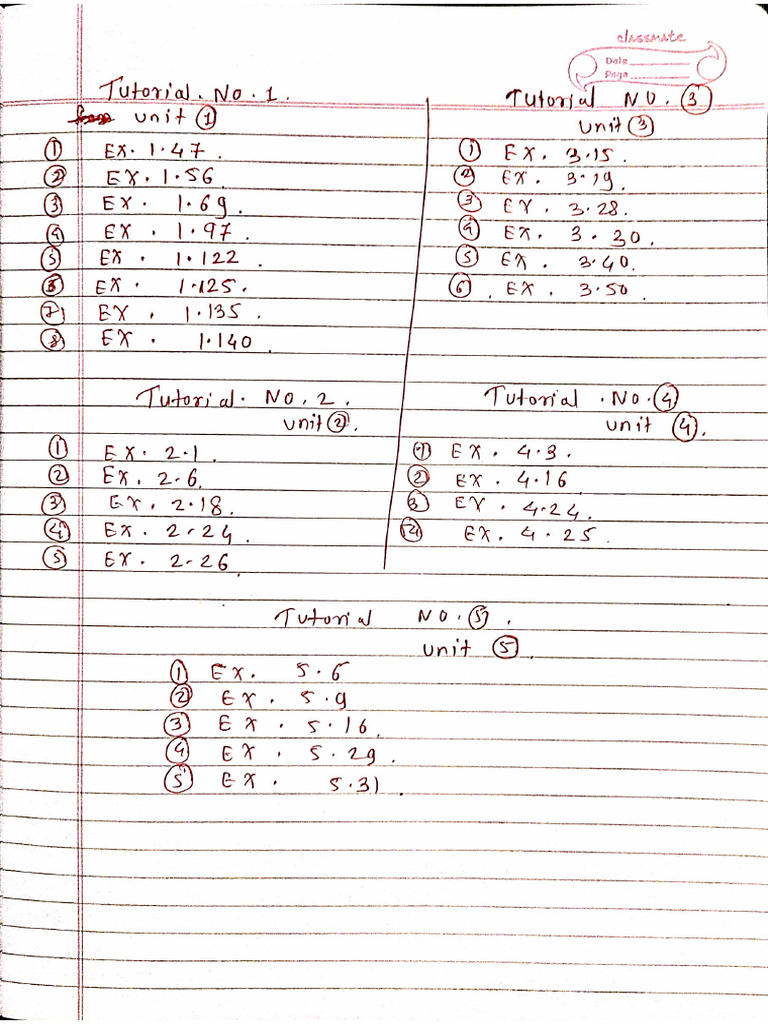 classmate
Date
Page
Tutorial. No. 1.
unit ①
① Ex. 1.47.
② Ex. 1.56.
③ Ex. 1.69.
④ Ex. 1.97.
⑤ Ex. 1.122.
⑥ Ex. 1.125.
⑦ Ex. 1.135.
⑧ Ex. 1.140.
Tutorial. No. 2.
unit ②.
① Ex. 2.1.
② Ex. 2.6.
③ Ex. 2.18.
④ Ex. 2.24.
⑤ Ex. 2.26.
Tutorial No. ③
unit ③
① Ex. 3.15.
② Ex. 3.19.
③ Ex. 3.28.
④ Ex. 3.30.
⑤ Ex. 3.40.
⑥. Ex. 3.50.
Tutorial .No. ④
unit ④.
① Ex. 4.3.
② Ex. 4.16
③ Ex. 4.24.
④ Ex. 4.25.
Tutorial No. ⑤.
unit ⑤.
① Ex. 5.6
② Ex. 5.9
③ Ex. 5.16.
④ Ex. 5.29.
⑤ Ex. 5.31.